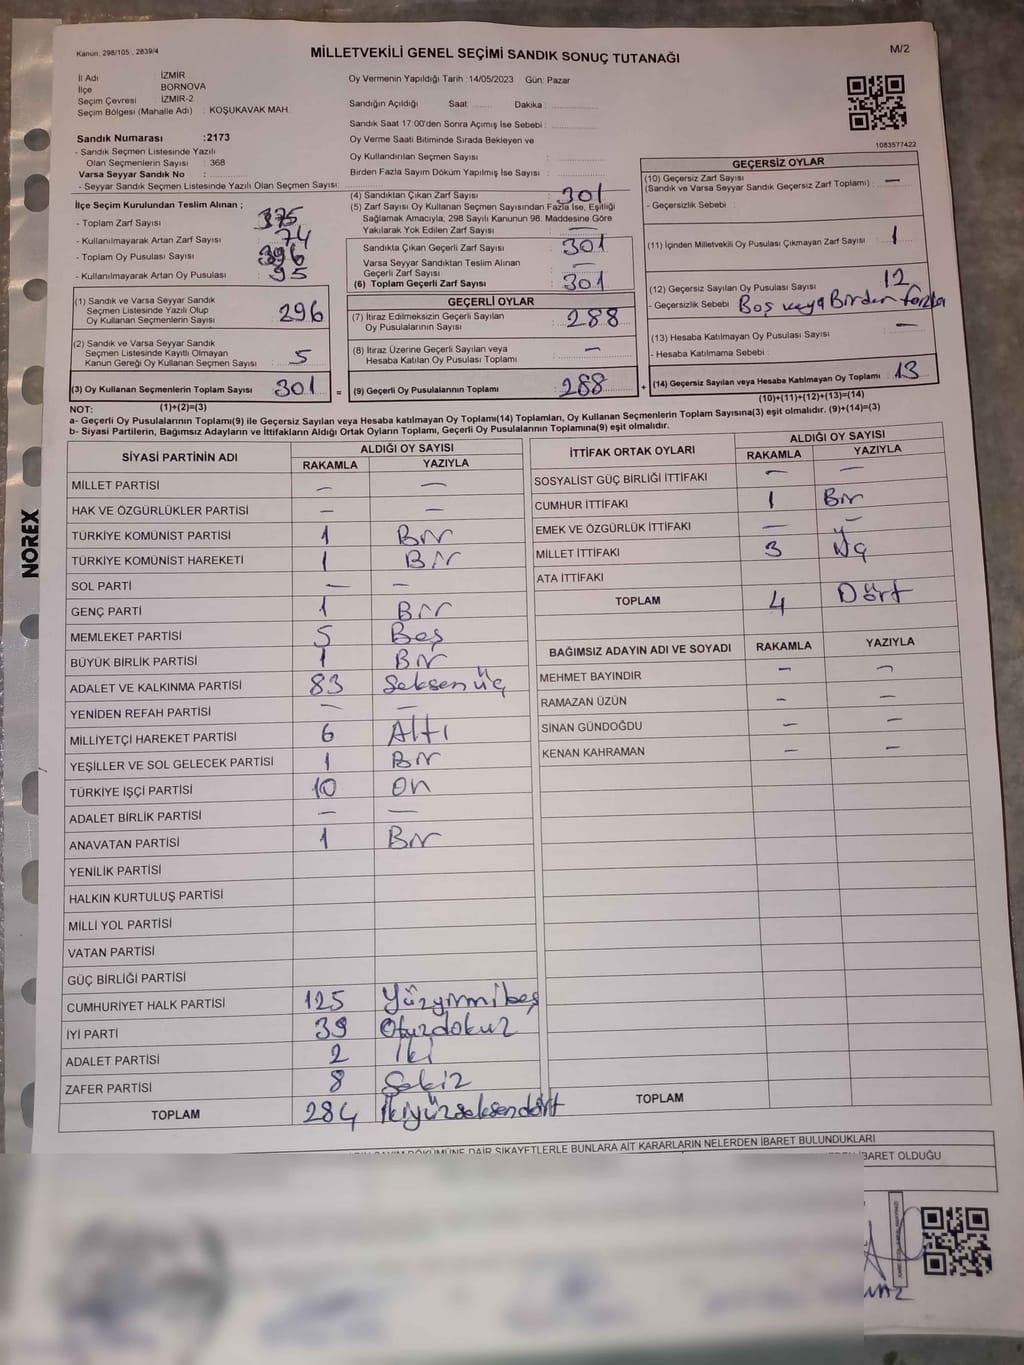 Kanun: 298/105 , 2839/4
MİLLETVEKİLİ GENEL SEÇİMİ SANDIK SONUÇ TUTANAĞI
M/2
İl Adı : İZMİR
İlçe : BORNOVA
Seçim Çevresi : İZMİR-2
Seçim Bölgesi (Mahalle Adı) : KOŞUKAVAK MAH.
Sandık Numarası :2173
- Sandık Seçmen Listesinde Yazılı
Olan Seçmenlerin Sayısı : 368
Varsa Seyyar Sandık No :
- Seyyar Sandık Seçmen Listesinde Yazılı Olan Seçmen Sayısı:
Oy Vermenin Yapıldığı Tarih :14/05/2023 Gün: Pazar
Sandığın Açıldığı Saat: Dakika :
Sandık Saat 17:00'den Sonra Açımış İse Sebebi :
Oy Verme Saati Bitiminde Sırada Bekleyen ve
Oy Kullandırılan Seçmen Sayısı :
Birden Fazla Sayım Döküm Yapılmış İse Sayısı :
1083577422
İlçe Seçim Kurulundan Teslim Alınan ;
- Toplam Zarf Sayısı : 375
- Kullanılmayarak Artan Zarf Sayısı : 74
- Toplam Oy Pusulası Sayısı : 396
- Kullanılmayarak Artan Oy Pusulası : 95
(1) Sandık ve Varsa Seyyar Sandık
Seçmen Listesinde Yazılı Olup
Oy Kullanan Seçmenlerin Sayısı : 296
(2) Sandık ve Varsa Seyyar Sandık
Seçmen Listesinde Kayıtlı Olmayan
Kanun Gereği Oy Kullanan Seçmen Sayısı : 5
(3) Oy Kullanan Seçmenlerin Toplam Sayısı : 301 =
(1)+(2)=(3)
(4) Sandıktan Çıkan Zarf Sayısı : 301
(5) Zarf Sayısı Oy Kullanan Seçmen Sayısından Fazla İse, Eşitliği
Sağlamak Amacıyla; 298 Sayılı Kanunun 98. Maddesine Göre
Yakılarak Yok Edilen Zarf Sayısı : —
Sandıkta Çıkan Geçerli Zarf Sayısı : 301
Varsa Seyyar Sandıktan Teslim Alınan
Geçerli Zarf Sayısı : —
(6) Toplam Geçerli Zarf Sayısı : 301
GEÇERLİ OYLAR
(7) İtiraz Edilmeksizin Geçerli Sayılan
Oy Pusulalarının Sayısı : 288
(8) İtiraz Üzerine Geçerli Sayılan veya
Hesaba Katılan Oy Pusulası Toplamı : —
(9) Geçerli Oy Pusulalarının Toplamı : 288 +
GEÇERSİZ OYLAR
(10) Geçersiz Zarf Sayısı
(Sandık ve Varsa Seyyar Sandık Geçersiz Zarf Toplamı) : —
- Geçersizlik Sebebi :
(11) İçinden Milletvekili Oy Pusulası Çıkmayan Zarf Sayısı : 1
(12) Geçersiz Sayılan Oy Pusulası Sayısı : 12
- Geçersizlik Sebebi : Boş veya Birden fazla
(13) Hesaba Katılmayan Oy Pusulası Sayısı : —
- Hesaba Katılmama Sebebi :
(14) Geçersiz Sayılan veya Hesaba Katılmayan Oy Toplamı : 13
(10)+(11)+(12)+(13)=(14)
NOT:
a- Geçerli Oy Pusulalarının Toplamı(9) ile Geçersiz Sayılan veya Hesaba katılmayan Oy Toplamı(14) Toplamları, Oy Kullanan Seçmenlerin Toplam Sayısına(3) eşit olmalıdır. (9)+(14)=(3)
b- Siyasi Partilerin, Bağımsız Adayların ve İttifakların Aldığı Ortak Oyların Toplamı, Geçerli Oy Pusulalarının Toplamına(9) eşit olmalıdır.
SİYASİ PARTİNİN ADI ALDIĞI OY SAYISI
RAKAMLA YAZIYLA
MİLLET PARTİSİ — —
HAK VE ÖZGÜRLÜKLER PARTİSİ — —
TÜRKİYE KOMÜNİST PARTİSİ 1 Bir
TÜRKİYE KOMÜNİST HAREKETİ 1 Bir
SOL PARTİ — —
GENÇ PARTİ 1 Bir
MEMLEKET PARTİSİ 5 Beş
BÜYÜK BİRLİK PARTİSİ 1 Bir
ADALET VE KALKINMA PARTİSİ 83 Seksen üç
YENİDEN REFAH PARTİSİ — —
MİLLİYETÇİ HAREKET PARTİSİ 6 Altı
YEŞİLLER VE SOL GELECEK PARTİSİ 1 Bir
TÜRKİYE İŞÇİ PARTİSİ 10 On
ADALET BİRLİK PARTİSİ — —
ANAVATAN PARTİSİ 1 Bir
YENİLİK PARTİSİ
HALKIN KURTULUŞ PARTİSİ
MİLLİ YOL PARTİSİ
VATAN PARTİSİ
GÜÇ BİRLİĞİ PARTİSİ
CUMHURİYET HALK PARTİSİ 125 Yüzyirmibeş
İYİ PARTİ 39 Otuzdokuz
ADALET PARTİSİ 2 İki
ZAFER PARTİSİ 8 Sekiz
TOPLAM 284 İkiyüzseksendört
İTTİFAK ORTAK OYLARI ALDIĞI OY SAYISI
RAKAMLA YAZIYLA
SOSYALİST GÜÇ BİRLİĞİ İTTİFAKI — —
CUMHUR İTTİFAKI 1 Bir
EMEK VE ÖZGÜRLÜK İTTİFAKI — —
MİLLET İTTİFAKI 3 Üç
ATA İTTİFAKI
TOPLAM 4 Dört
BAĞIMSIZ ADAYIN ADI VE SOYADI RAKAMLA YAZIYLA
MEHMET BAYINDIR — —
RAMAZAN ÜZÜN — —
SİNAN GÜNDOĞDU — —
KENAN KAHRAMAN — —
TOPLAM
DÖKÜMÜNE DAİR ŞİKAYETLERLE BUNLARA AİT KARARLARIN NELERDEN İBARET BULUNDUKLARI
İBARET OLDUĞU
NOREX